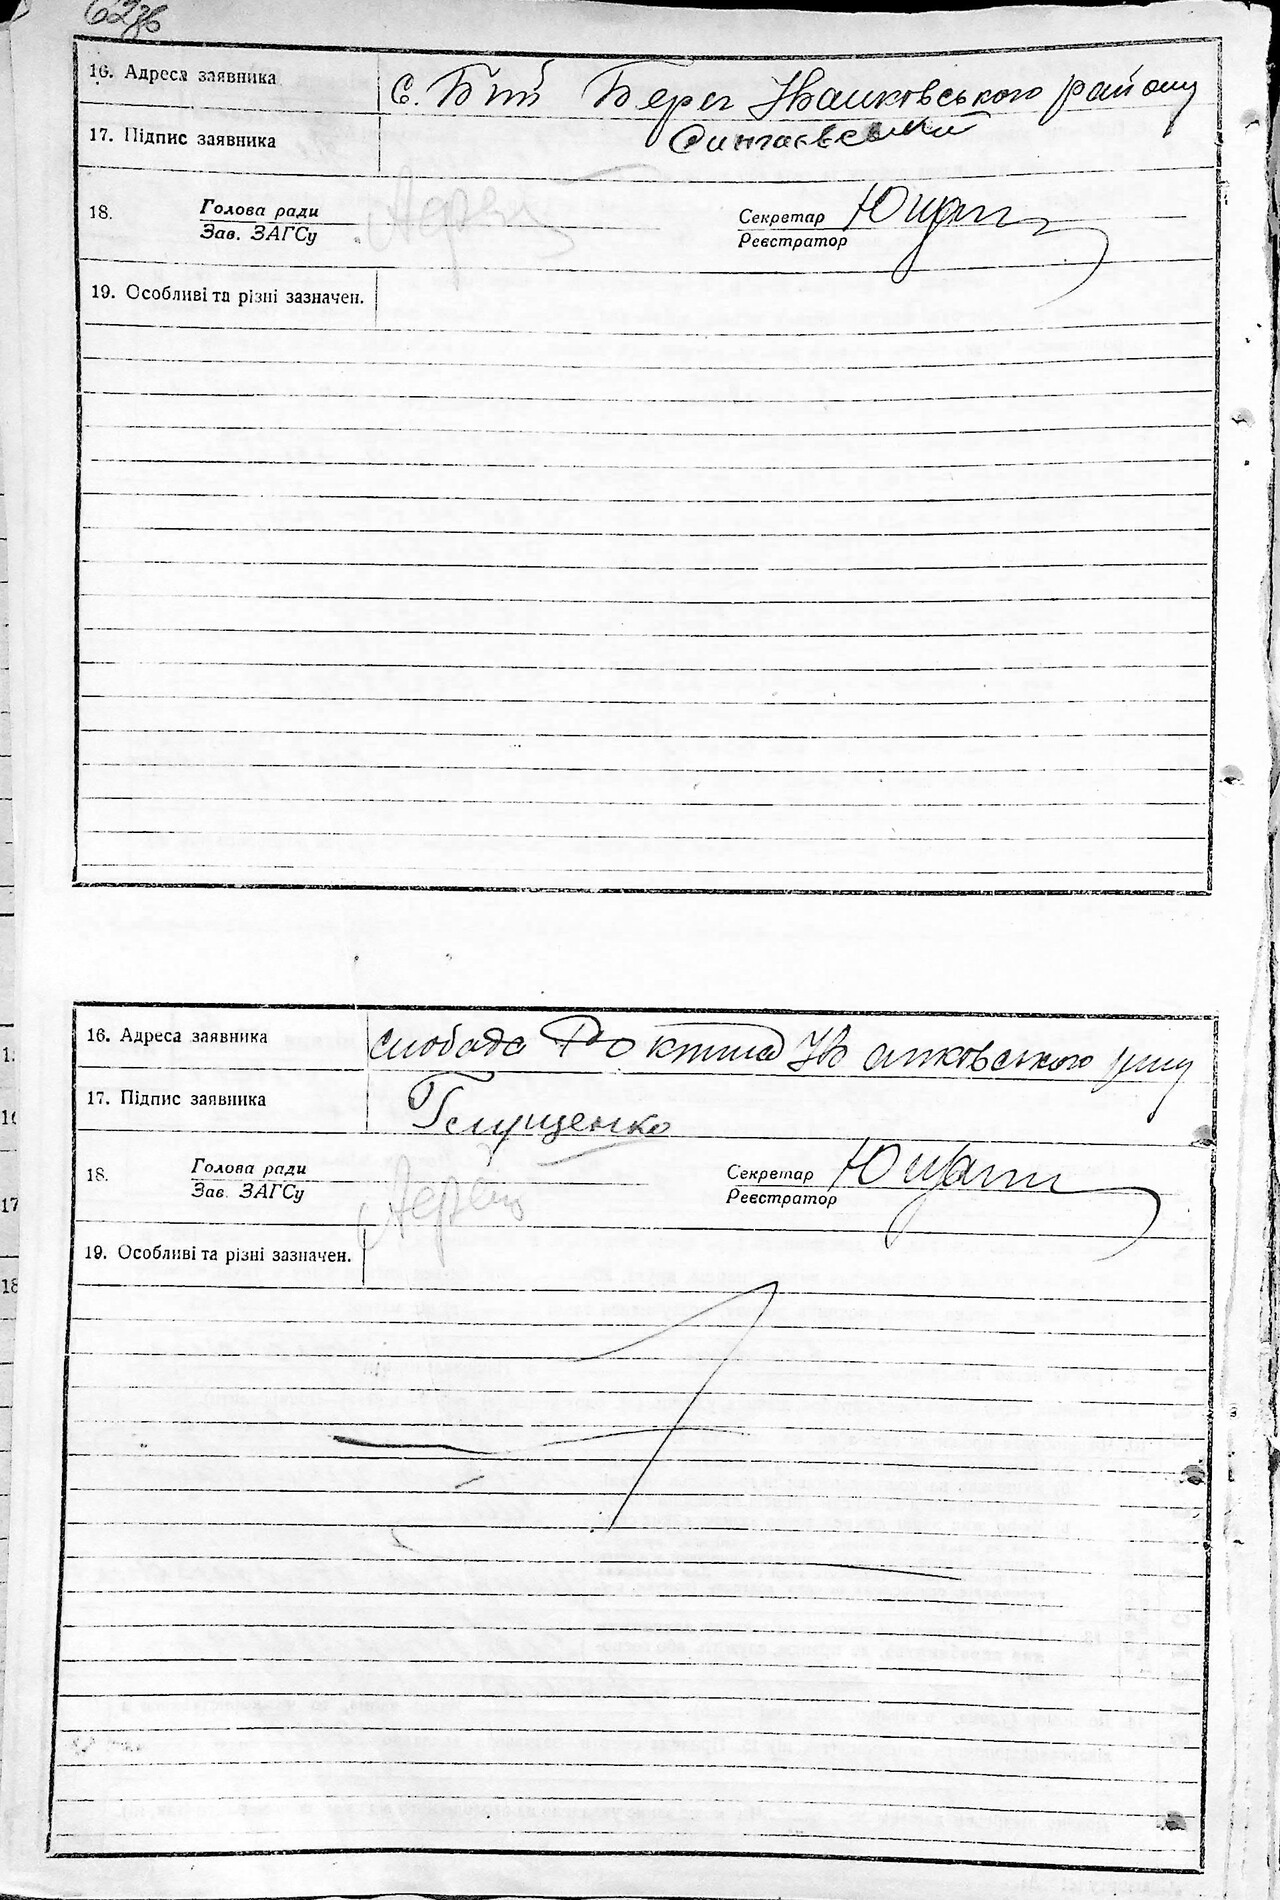 16. Адреса заявника с. Білий Берег Іванковського району
17. Підпис заявника Сингаєвський
18. Голова ради
Зав. ЗАГСу
Секретар
Реєстратор
19. Особливі та різні зазначен.
16. Адреса заявника слобода Іванковського р-ну
17. Підпис заявника Глущенко
18. Голова ради
Зав. ЗАГСу
Секретар
Реєстратор
19. Особливі та різні зазначен.